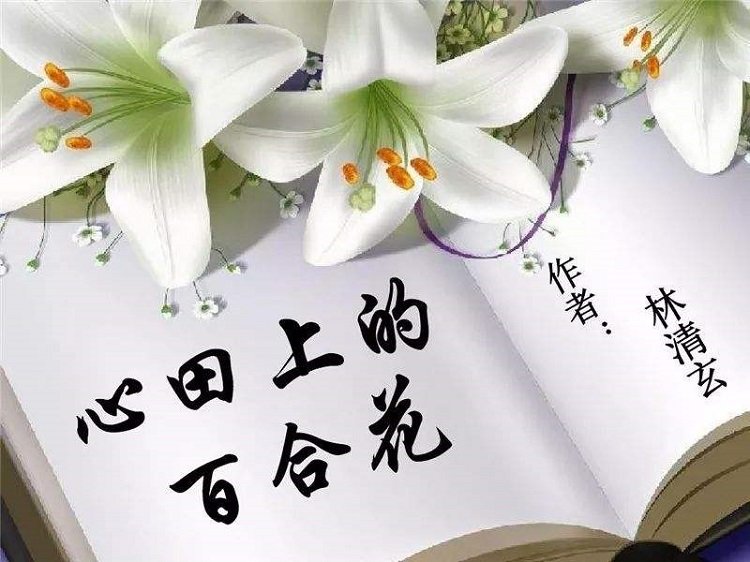 心田上的
百合花
作者：
林清玄